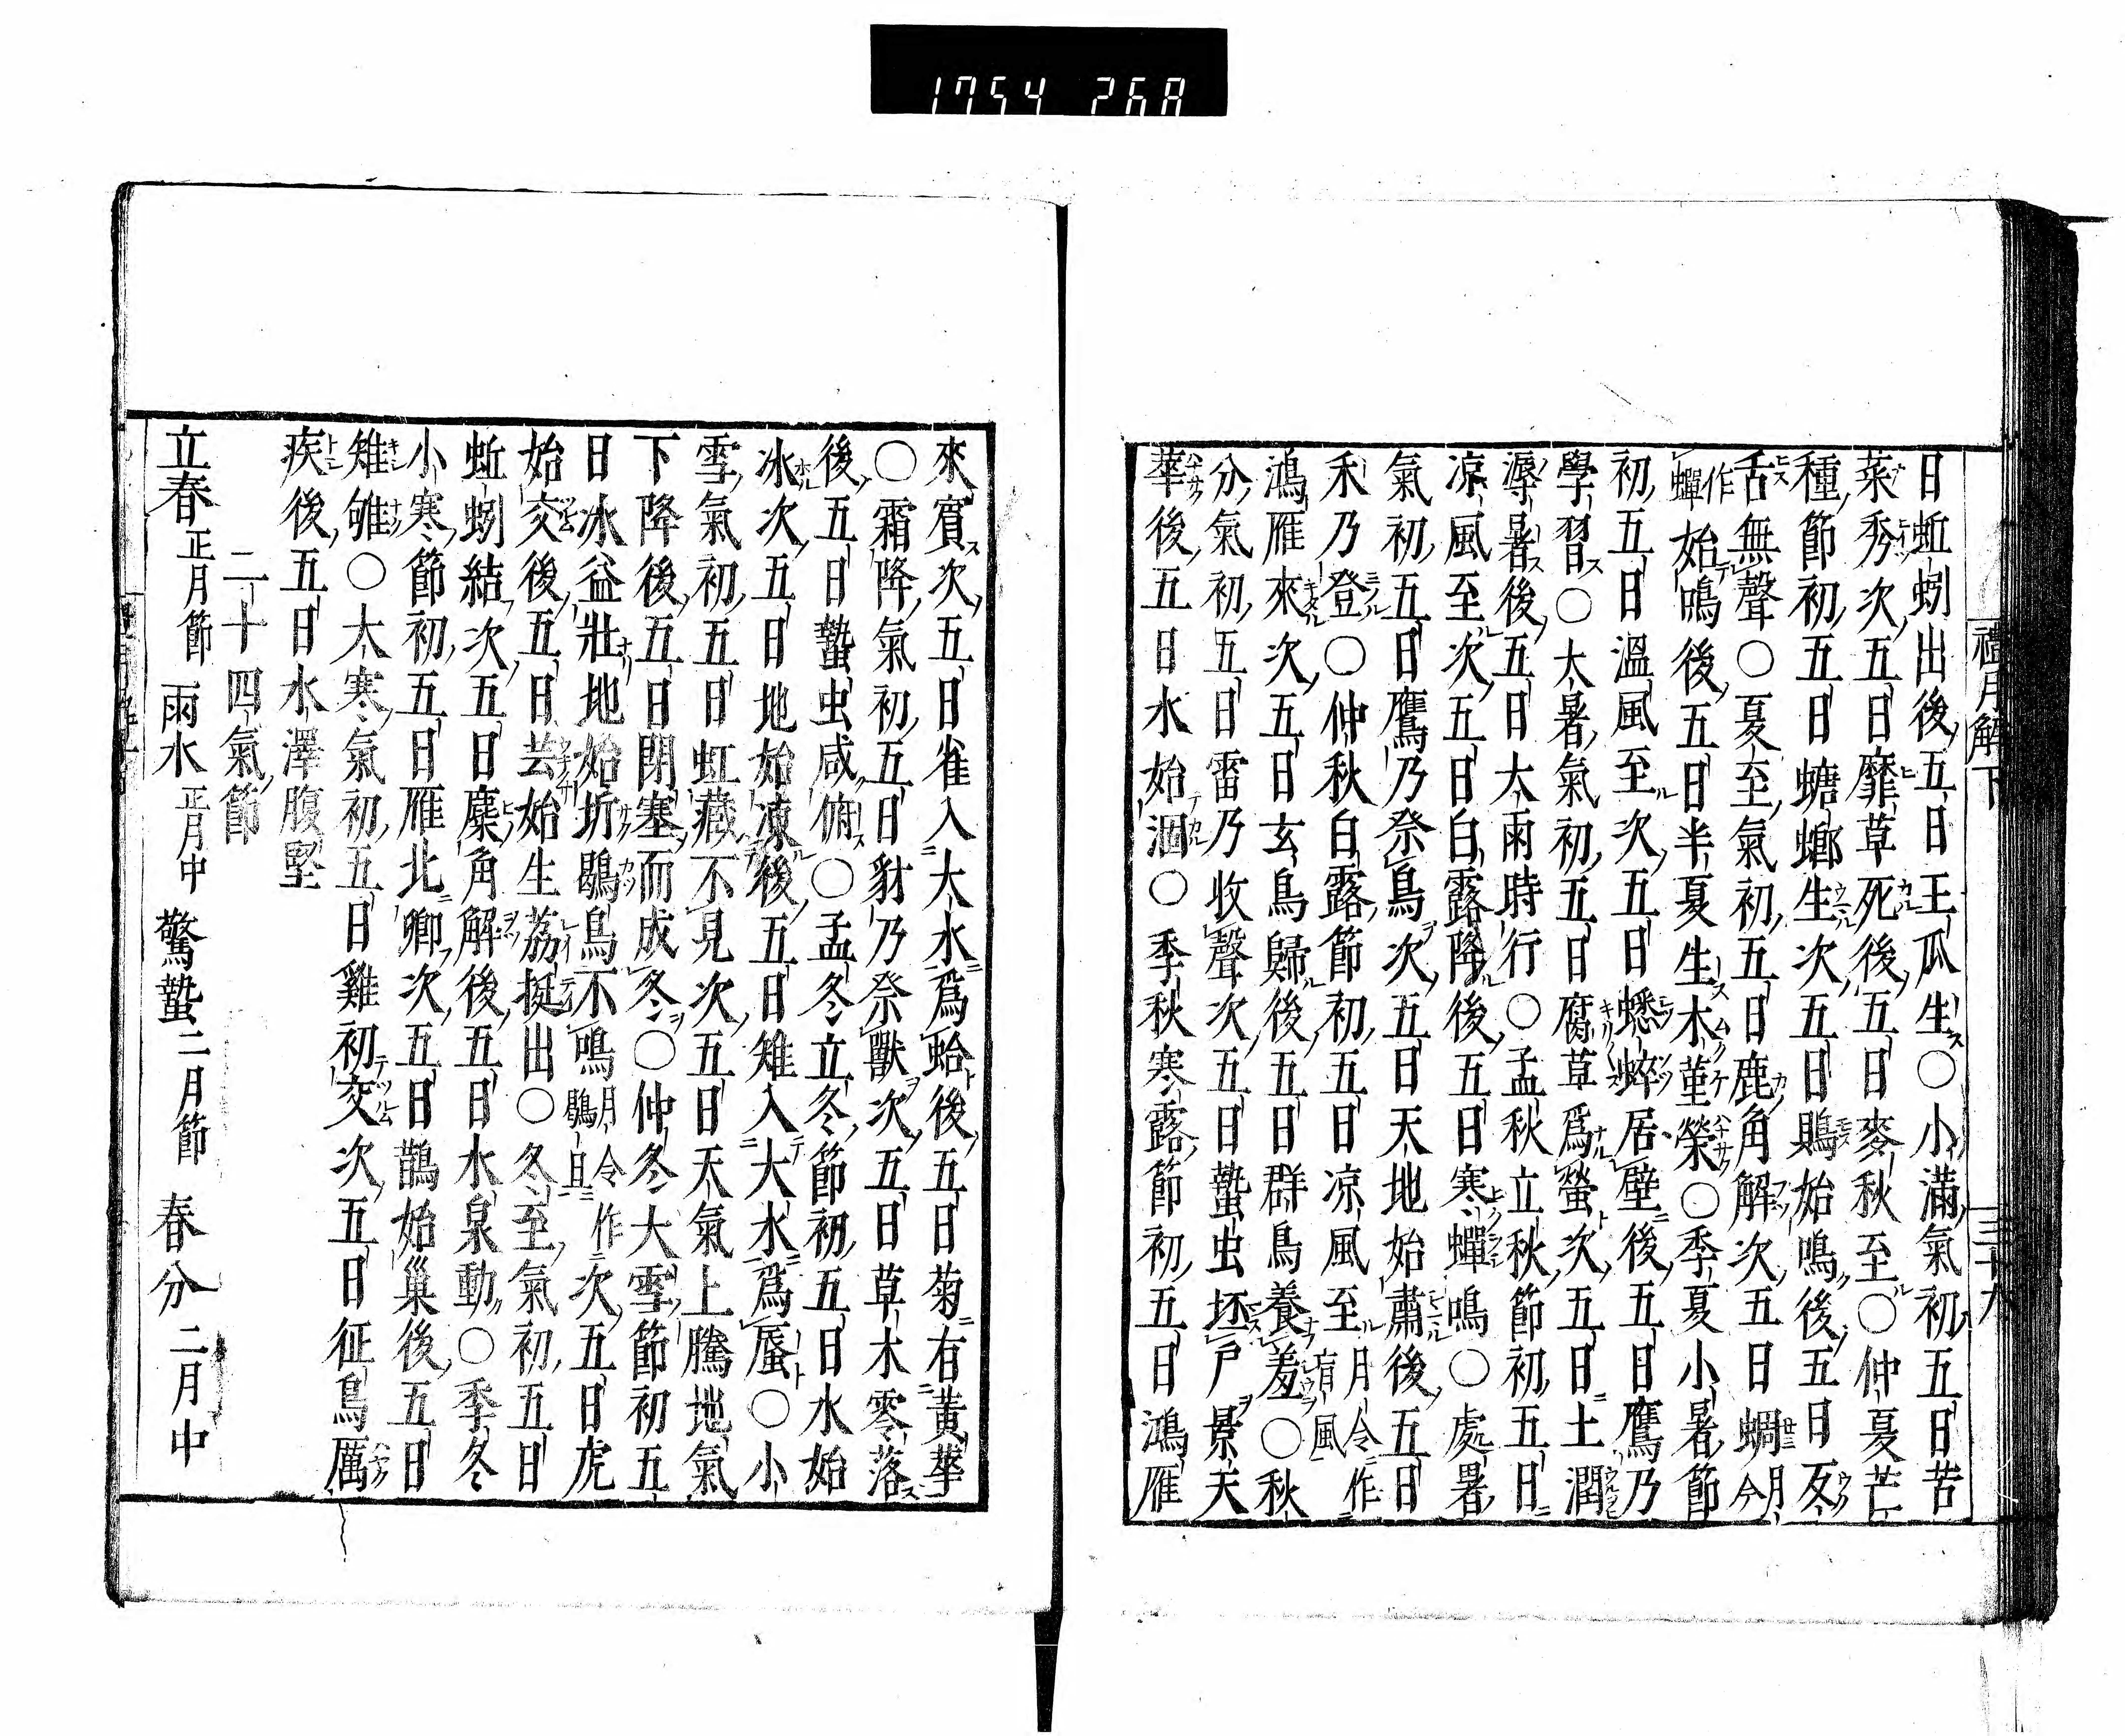 1754 268
禮月解下
三十六
日蚯蚓出後五日王瓜生○小滿氣初五日苦
菜秀次五日靡草死後五日麥秋至○仲夏芒
種節初五日螗螂生次五日鵙始鳴後五日反
舌無聲○夏至氣初五日鹿角解次五日蜩月令
作蟬始鳴後五日半夏生木堇榮○季夏小暑節
初五日溫風至次五日蟋蟀居壁後五日鷹乃
學習○大暑氣初五日腐草爲螢次五日土潤
溽暑後五日大雨時行○孟秋立秋節初五日
凉風至次五日白露降後五日寒蟬鳴○處暑
氣初五日鷹乃祭鳥次五日天地始肅後五日
禾乃登○仲秋白露節初五日凉風至月令作盲風
鴻雁來次五日玄鳥歸後五日群鳥養羞○秋
分氣初五日雷乃收聲次五日蟄虫坯戸景天
華後五日水始涸○季秋寒露節初五日鴻雁
來賓次五日雀入大水爲蛤後五日菊有黃華
○霜降氣初五日豺乃祭獸次五日草木零落
後五日蟄虫咸俯○孟冬立冬節初五日水始
冰次五日地始凍後五日雉入大水爲蜃○小
雪氣初五日虹藏不見次五日天氣上騰地氣
下降後五日閉塞而成冬○仲冬大雪節初五
日冰益壯地始坼鶡鳥不鳴月令作鶡旦次五日虎
始交後五日芸始生荔挺出○冬至氣初五日
蚯蚓結次五日麋角解後五日水泉動○季冬
小寒節初五日雁北鄉次五日鵲始巢後五日
雉雊○大寒氣初五日雞初交次五日征鳥厲
疾後五日水澤腹堅
二十四氣節
立春正月節 雨水正月中 驚蟄二月節 春分二月中